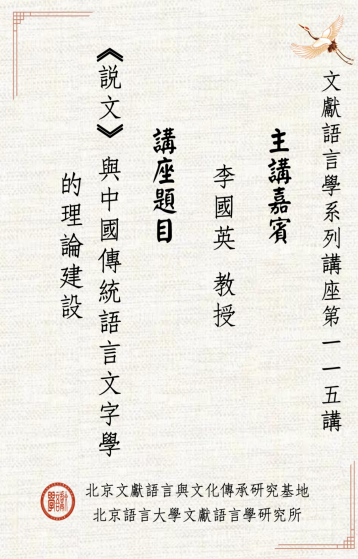 文獻語言學系列講座第一一五講
主講嘉賓
李國英 教授
講座題目
《說文》與中國傳統語言文字學
的理論建設
北京文獻語言與文化傳承研究基地
北京語言大學文獻語言學研究所